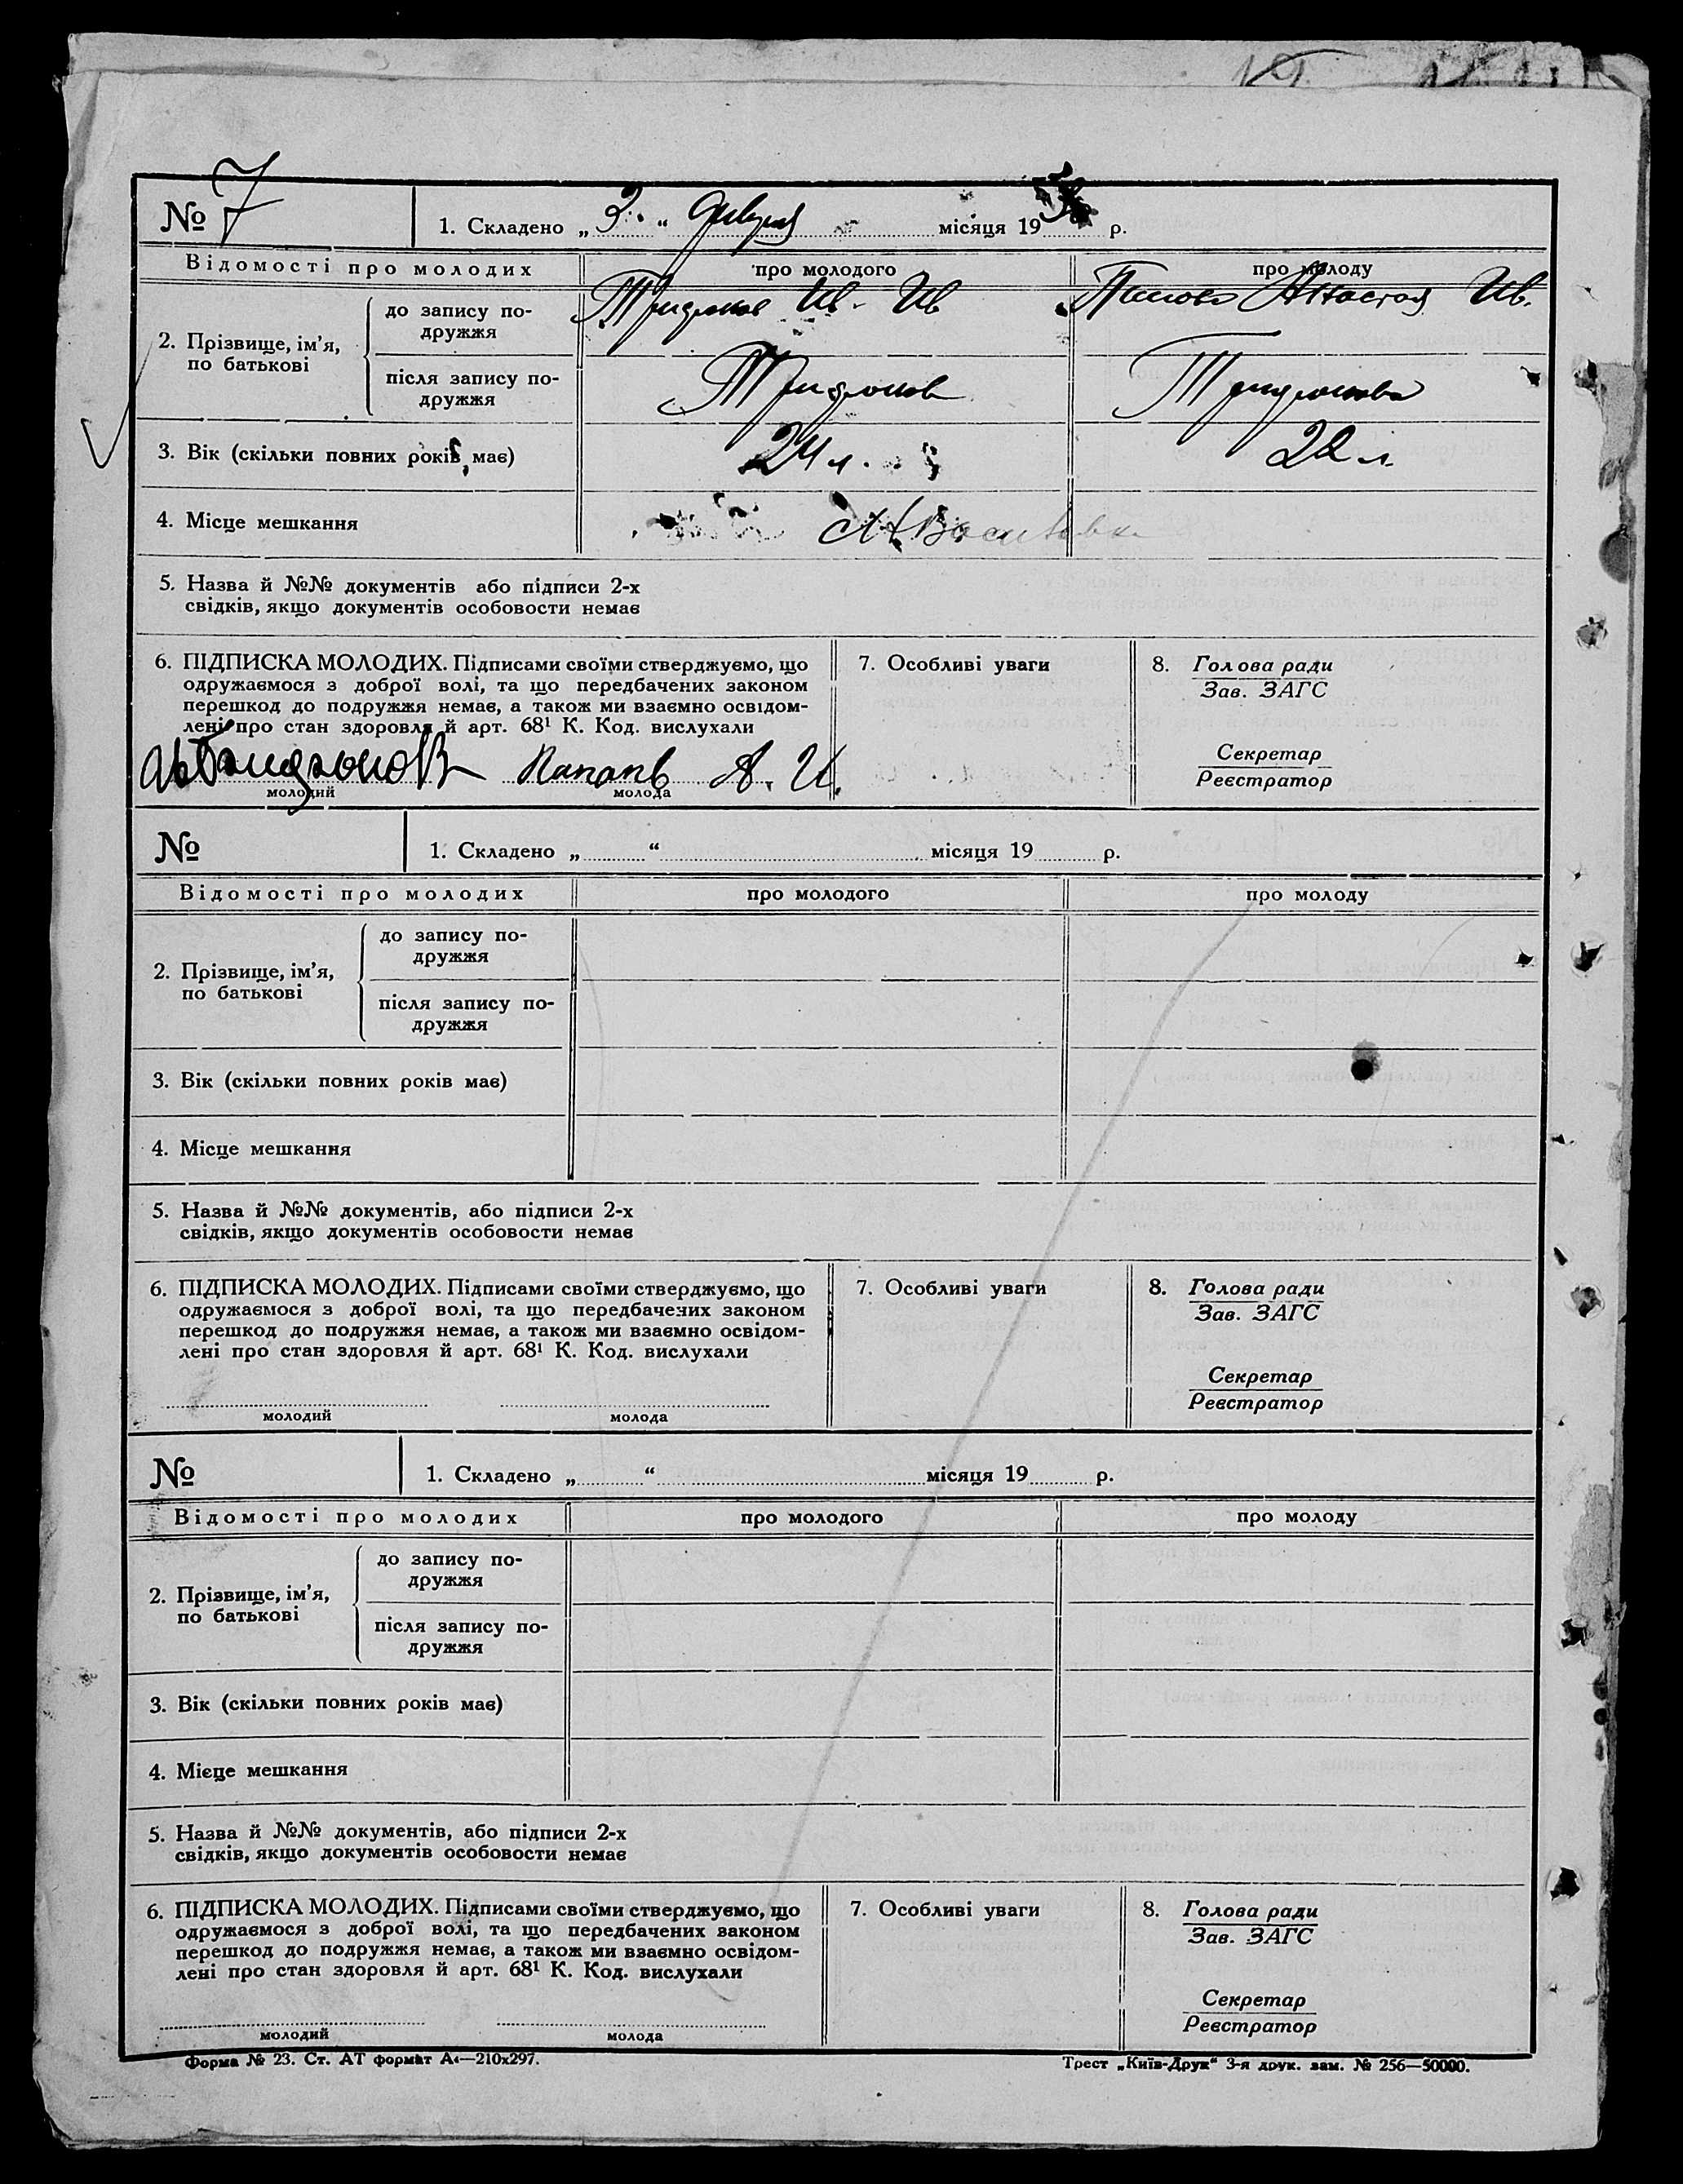 № 7
1. Складено „ 3 “ місяця 19 р.
Відомості про молодих
про молодого
про молоду
2. Прізвище, ім’я, по батькові
до запису по-
дружжя
Ив. Ив
Ив.
після запису по-
дружжя
3. Вік (скільки повних років має)
24 л.
22 л.
4. Місце мешкання
5. Назва й №№ документів або підписи 2-х
свідків, якщо документів особовости немає
6. ПІДПИСКА МОЛОДИХ. Підписами своїми стверджуємо, що
одружаємося з доброї волі, та що передбачених законом
перешкод до подружжя немає, а також ми взаємно освідом-
лені про стан здоровля й арт. 68¹ К. Код. вислухали
А. И.
молодий
молода
7. Особливі уваги
8. Голова ради
Зав. ЗАГС
Секретар
Реєстратор
№
1. Складено „ “ місяця 19 р.
Відомості про молодих
про молодого
про молоду
2. Прізвище, ім’я,
по батькові
до запису по-
дружжя
після запису по-
дружжя
3. Вік (скільки повних років має)
4. Місце мешкання
5. Назва й №№ документів, або підписи 2-х
свідків, якщо документів особовости немає
6. ПІДПИСКА МОЛОДИХ. Підписами своїми стверджуємо, що
одружаємося з доброї волі, та що передбачених законом
перешкод до подружжя немає, а також ми взаємно освідом-
лені про стан здоровля й арт. 68¹ К. Код. вислухали
молодий
молода
7. Особливі уваги
8. Голова ради
Зав. ЗАГС
Секретар
Реєстратор
№
1. Складено „ “ місяця 19 р.
Відомості про молодих
про молодого
про молоду
2. Прізвище, ім’я,
по батькові
до запису по-
дружжя
після запису по-
дружжя
3. Вік (скільки повних років має)
4. Місце мешкання
5. Назва й №№ документів, або підписи 2-х
свідків, якщо документів особовости немає
6. ПІДПИСКА МОЛОДИХ. Підписами своїми стверджуємо, що
одружаємося з доброї волі, та що передбачених законом
перешкод до подружжя немає, а також ми взаємно освідом-
лені про стан здоровля й арт. 68¹ К. Код. вислухали
молодий
молода
7. Особливі уваги
8. Голова ради
Зав. ЗАГС
Секретар
Реєстратор
Форма № 23. Ст. АТ формат А₄—210х297.
Трест „Київ-Друк“ 3-я друк. зам. № 256—50000.